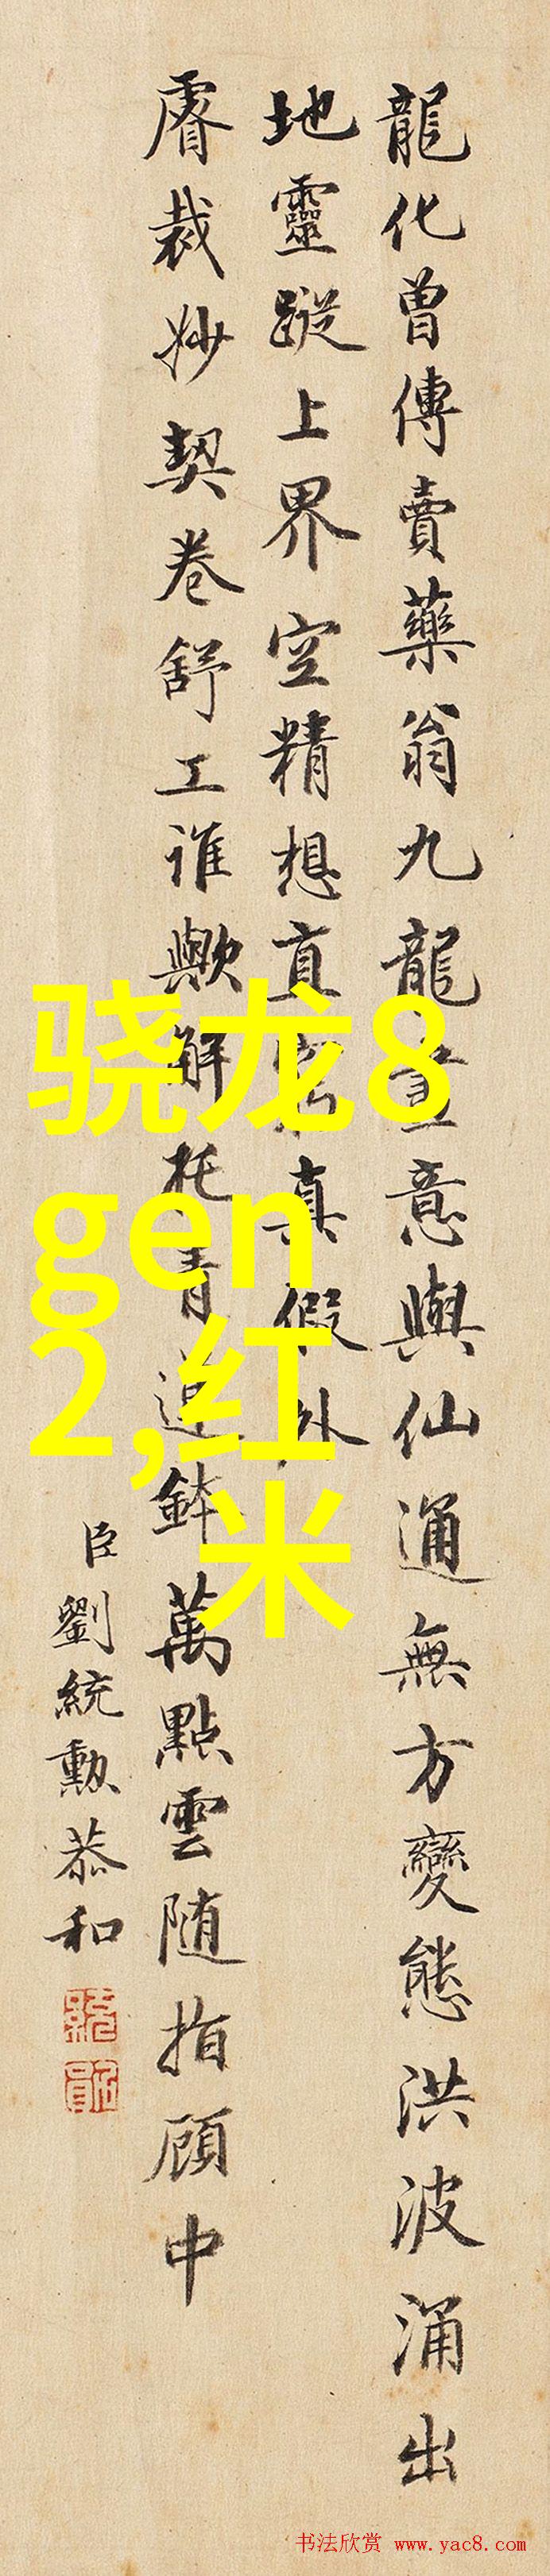 龍化曽傳賣藥翁九龍畫意與仙通無方變態洪波涌出
地靈蹤上界空精想直真假外
睿裁妙契卷舒工誰歟解托青蓮鉢萬點雲随指顧中
臣劉統勲恭和
骁龙8
gen
2,红
米
书法欣赏 www.yac8.com